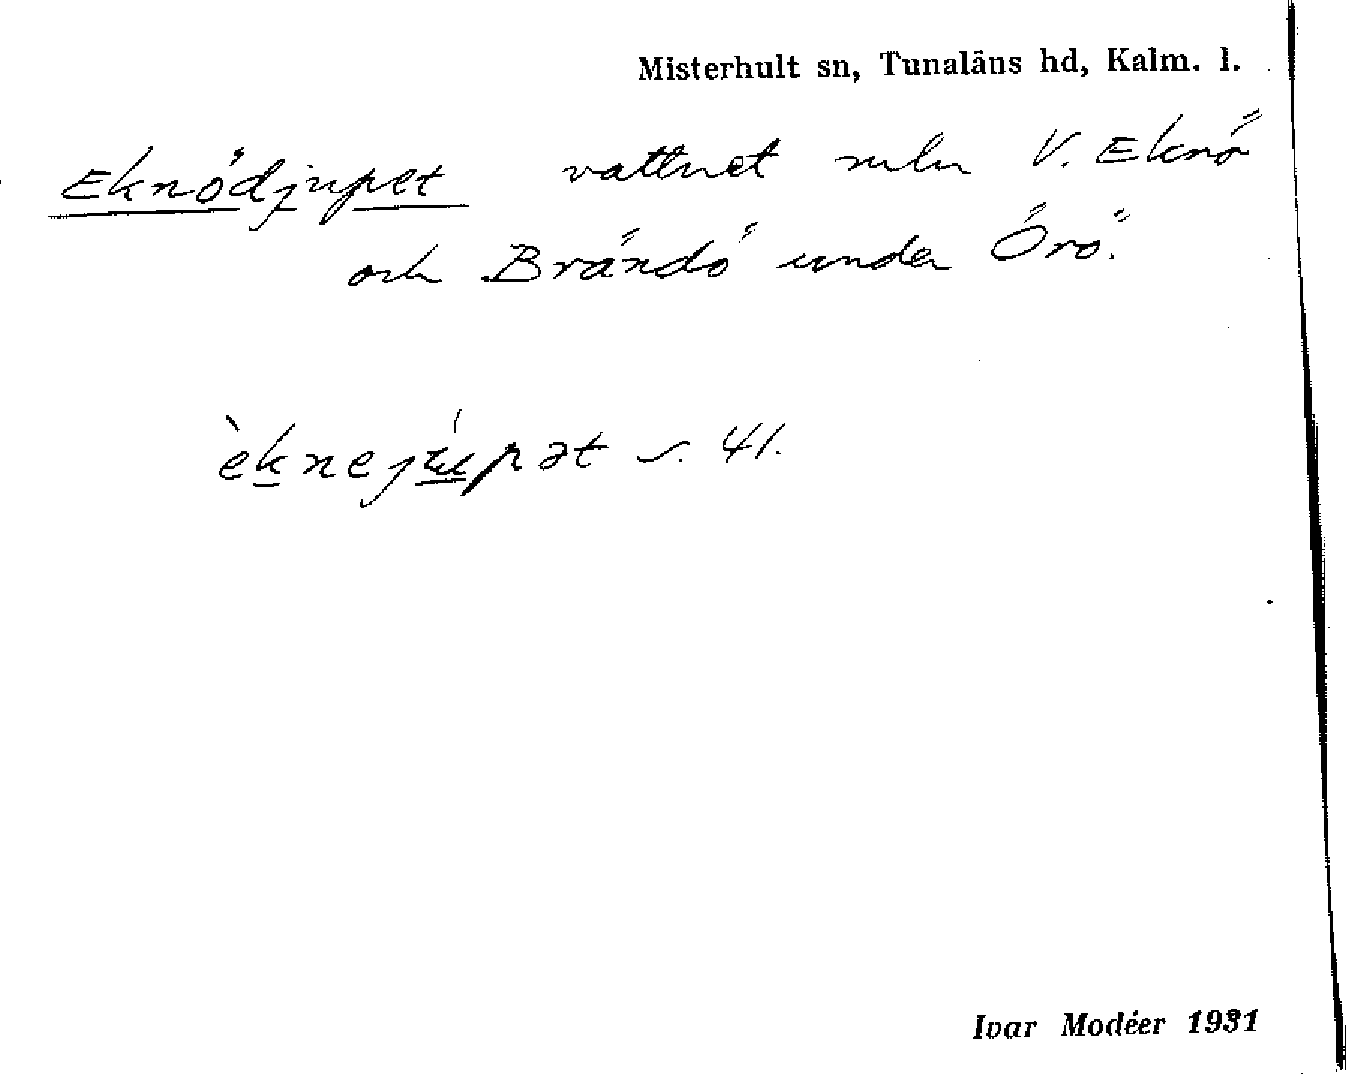 Misterhult sn, Tunaläns hd, Kalm. l.
Eknödjupet vattnet mln V. Eknö
och Brändö under Örö.
èknejúpət s. 41.
Ivar Modéer 1931